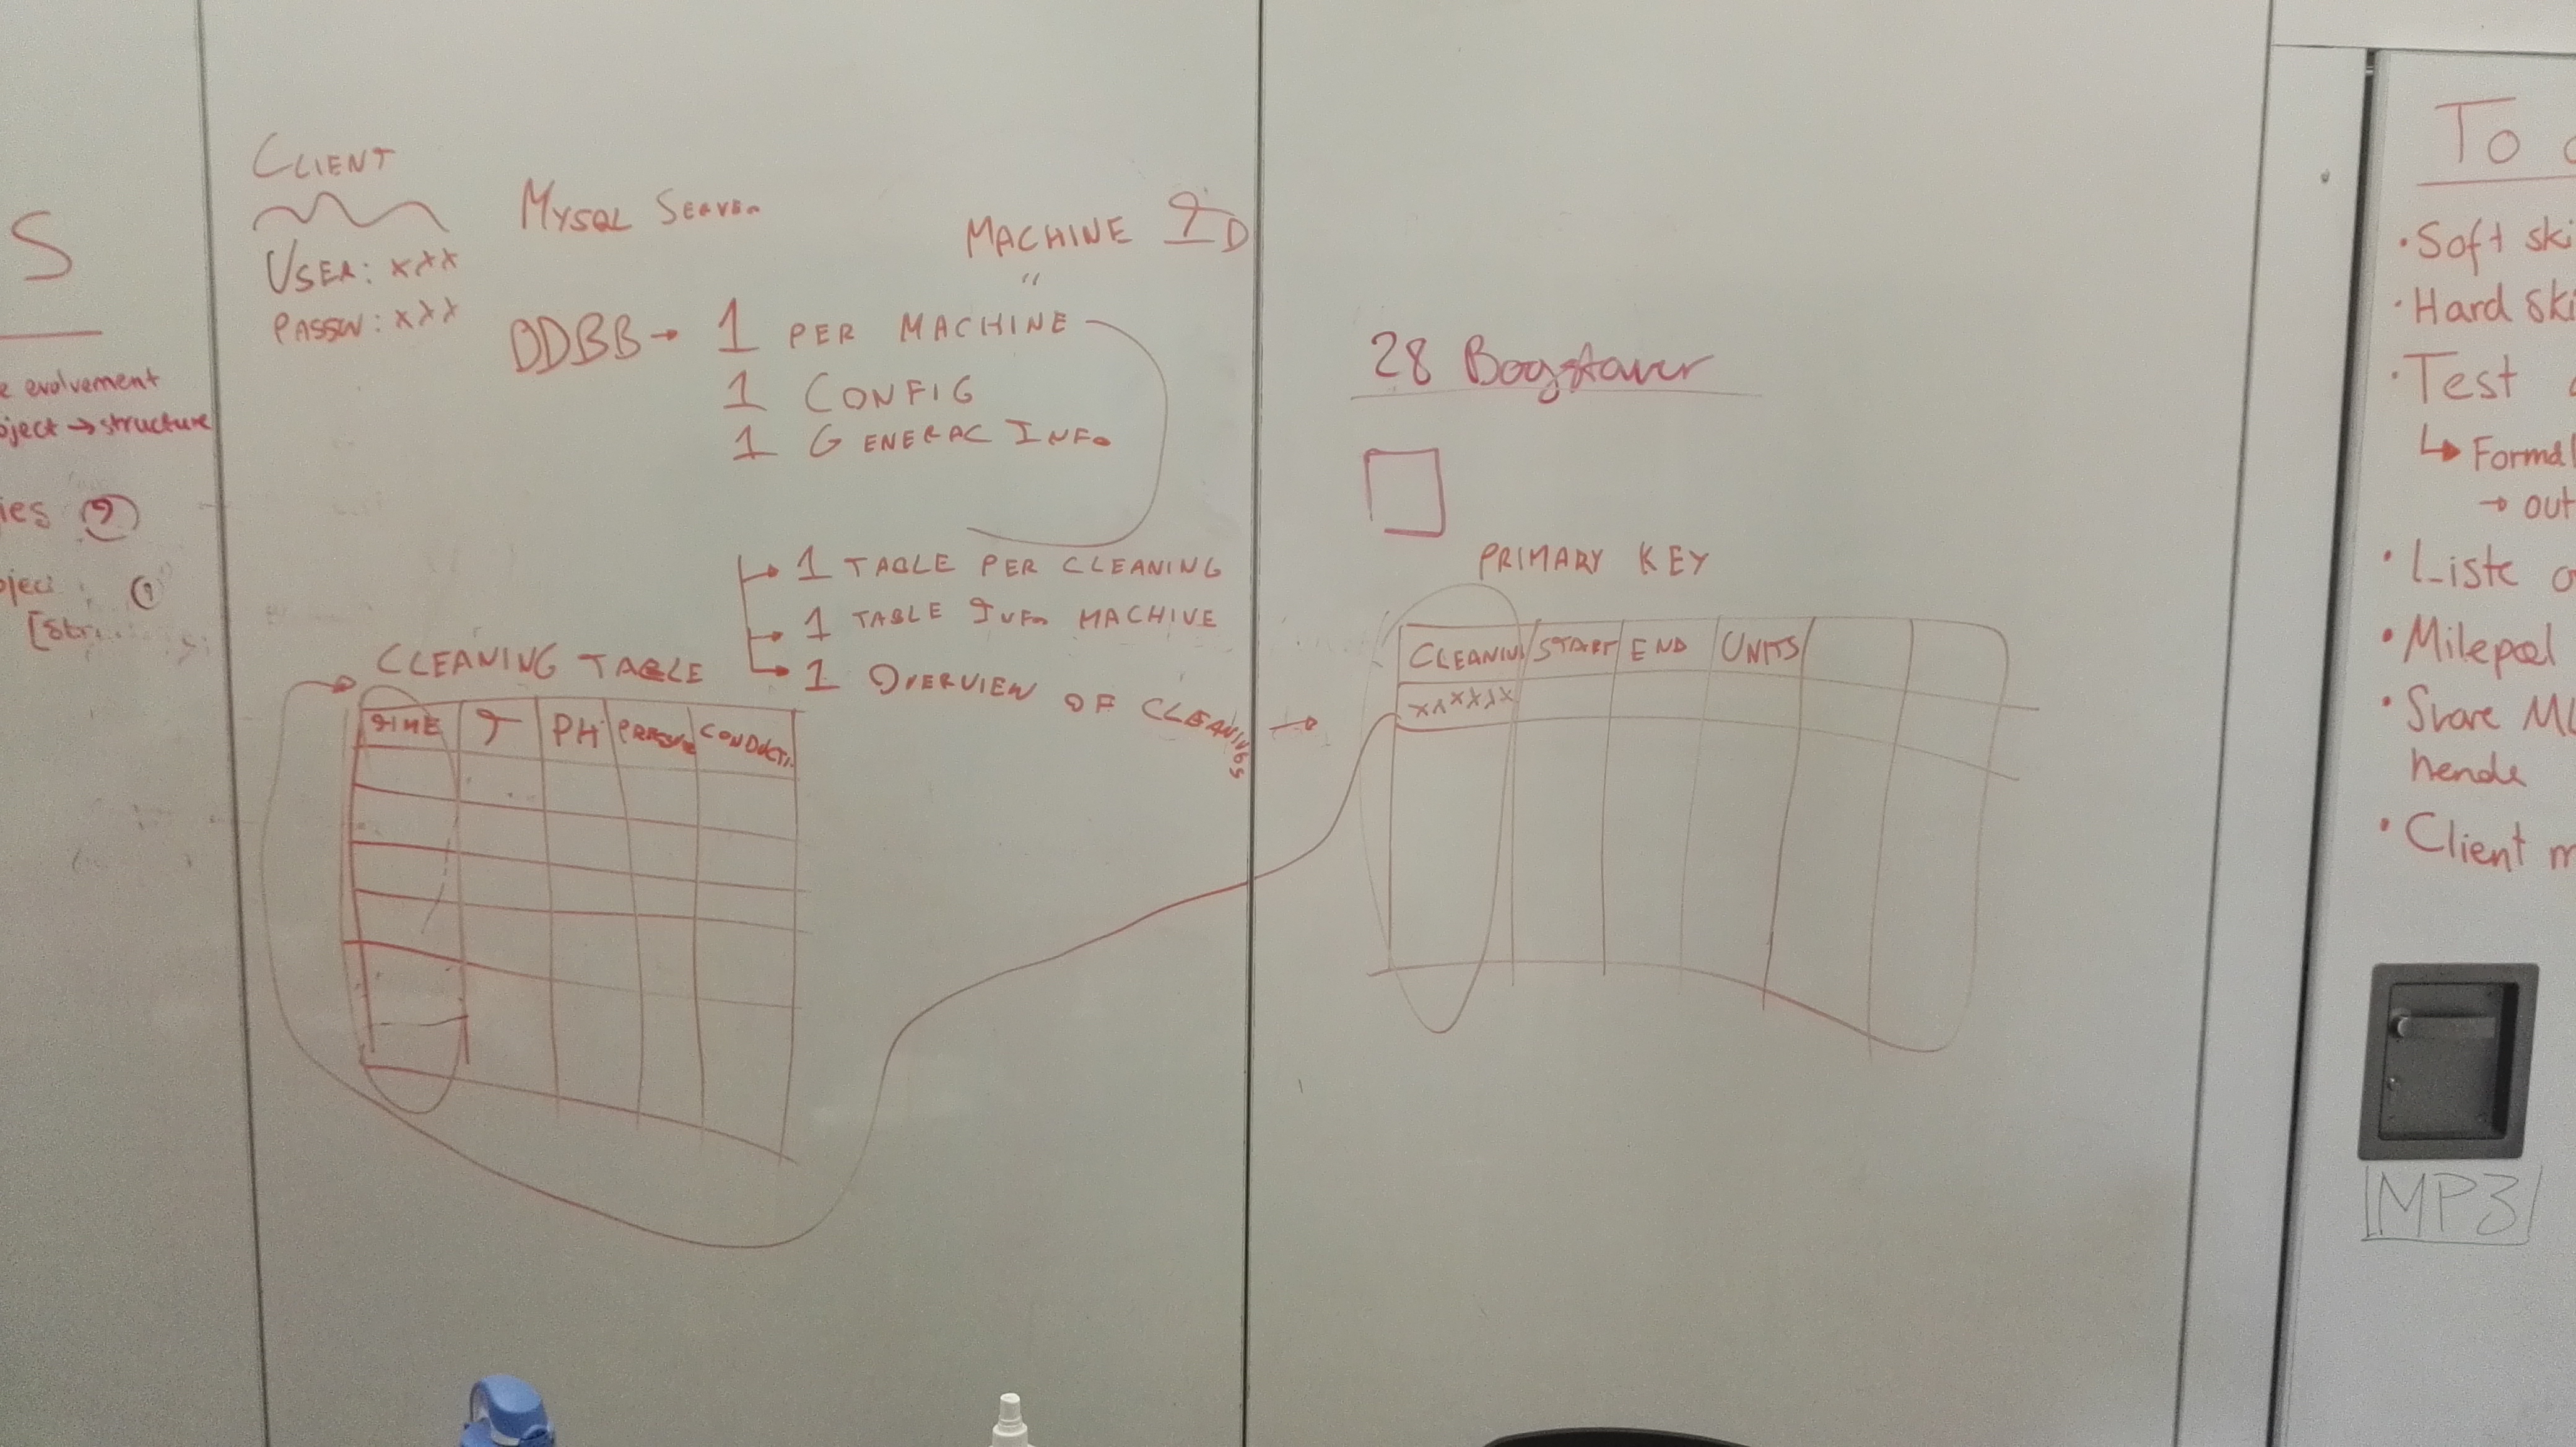 S
e evolvement
oject → structure
ies ?
CLIENT
USER: xxx
PASSW: xxx
MYSQL SERVER
MACHINE ID
"
DDBB → 1 PER MACHINE
1 CONFIG
1 GENERAL INFO
1 TABLE PER CLEANING
1 TABLE INFO MACHINE
1 OVERVIEW OF CLEANINGS →
CLEANING TABLE
TIME T PH PRESSURE CONDUCTI.
28 Bogstaver
PRIMARY KEY
CLEANING START END UNITS
xxxxxx
To
• Soft ski
• Hard ski
• Test
↳ Formål
→ out
• Liste
• Milepæl
• Svare
hende
• Client m
MP3